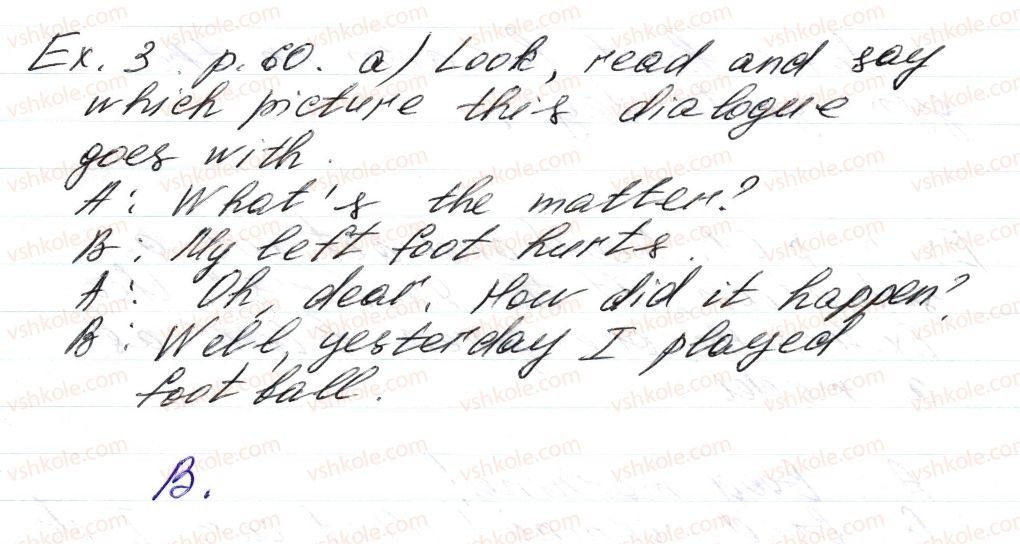 Ex. 3. p. 60. a) Look, read and say
which picture this dialogue
goes with.
A: What's the matter?
B: My left foot hurts.
A: Oh, dear. How did it happen?
B: Well, yesterday I played
football.
B.